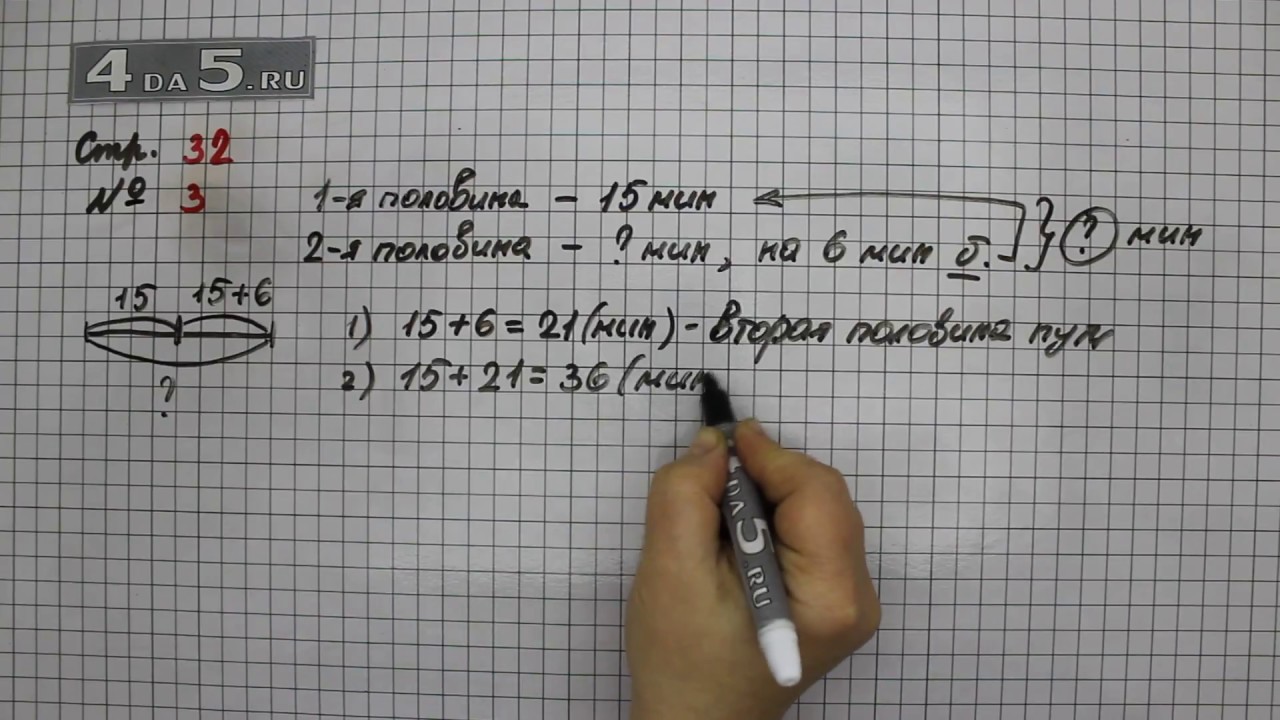 4DA5.RU
Стр. 32
№ 3
1-я половина - 15 мин
2-я половина - ? мин, на 6 мин б. } ? мин
15 15+6
?
1) 15+6=21(мин) - вторая половина пути
2) 15+21=36(мин
4DA5.RU